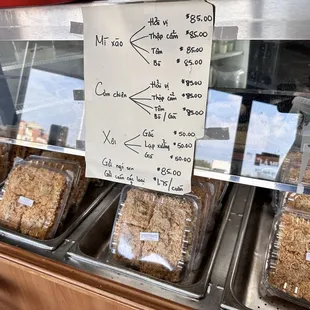 Hải vị $85.00
Mì xào Thập cẩm $85.00
Tôm $85.00
Bò $85.00
Hải vị $85.00
Cơm chiên Thập cẩm $85.00
Tôm $85.00
Bò / Gà
Gấc $50.00
Xôi Lạp xưởng $50.00
$50.00
Gỏi ngó sen $85.00
Gỏi cuốn các loại $1.75/cuốn